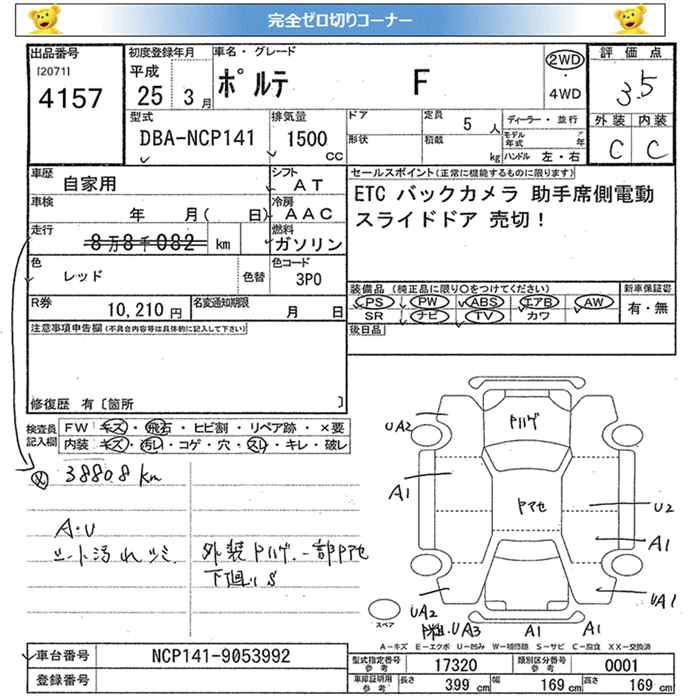 完全ゼロ切りコーナー
出品番号
[2071]
4157
初度登録年月
平成
25 3月
車名・グレード
ポルテ F
2WD
・
4WD
評価点
3.5
外装 内装
C C
型式
DBA-NCP141
排気量
1500
CC
ドア
形状
定員 5人
積載 kg
ディーラー・並行
モデル年式 年
ハンドル 左・右
車歴
自家用
シフト
AT
車検
年 月( 日)
冷房
AAC
走行
8万8千082 km
燃料
ガソリン
色
レッド
色替
色コード
3P0
R券
10,210円
名変通知期限
月 日
セールスポイント(正常に機能するものに限ります)
ETC バックカメラ 助手席側電動
スライドドア 売切！
装備品 (純正品に限り○をつけてください)
PS PW ABS エアB AW
SR ナビ TV カワ
新車保証書
有・無
後日品
注意事項申告欄(不具合内容等は具体的に記入して下さい)
修復歴 有〔箇所 〕
検査員記入欄
FW キズ・飛石・ヒビ割・リペア跡・×要
内装 キズ・汚れ・コゲ・穴・スレ・キレ・破レ
38808 km
A・U
シート汚れツミ
外装トハゲ.一部トアセ
下廻りS
トハゲ
トアセ
UA2
A1
U2
A1
UA1
UA2
UA3
A1
A1
スペア
A－キズ E－エクボ U－凹み W－補修跡 S－サビ C－腐食 XX－交換済
車台番号
NCP141-9053992
登録番号
型式指定番号
参考
17320
類別区分番号
参考
0001
車庫証明用
参考
長さ 399 cm
幅 169 cm
高さ 169 cm